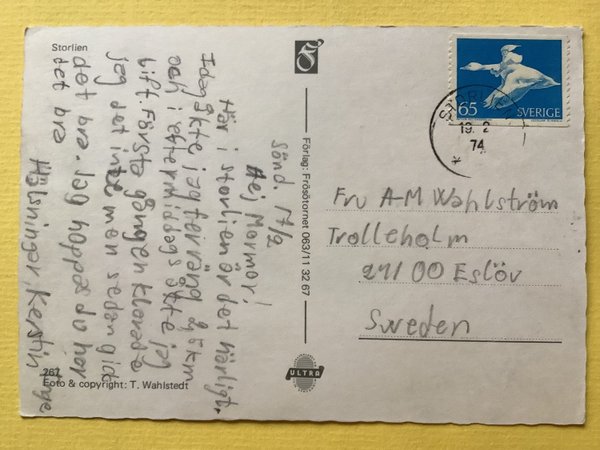 Storlien
Sönd. 17/2
Hej Mormor!
Här i storlien är det härligt.
Idag åkte jag terräng km
och i eftermiddags åkte jag
lift. Första gången klarade
jag det inte men sedan gick
det bra. Jag hoppas du har
det bra
Hälsningar Kerstin
267
Foto & copyright: T. Wahlstedt
Förlag: Frösötornet 063/11 32 67
ULTRA
65 SVERIGE
19. 2
74
Fru A-M Wahlström
Trolleholm
241 00 Eslöv
Sweden